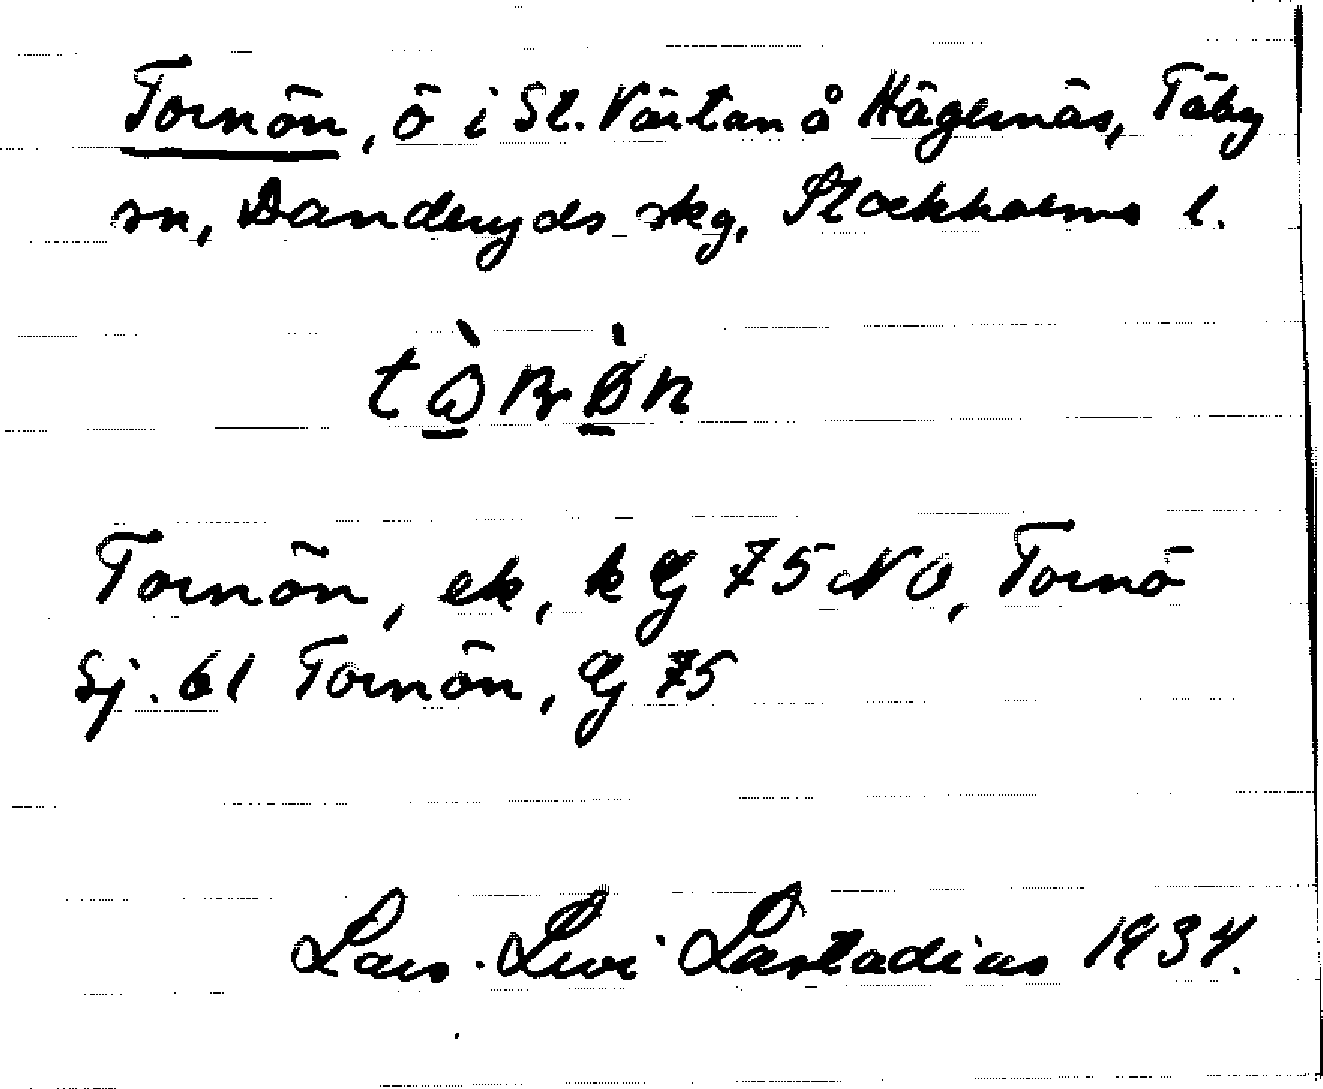 Tornön, ö i St. Värtan å Hägernäs, Täby
sn, Danderyds skg, Stockholms l.
Tornön, ek, k Gg 75 NO, Tornö
Sj. 61 Tornön, Gg 75
Lars-Levi Læstadius 1934.